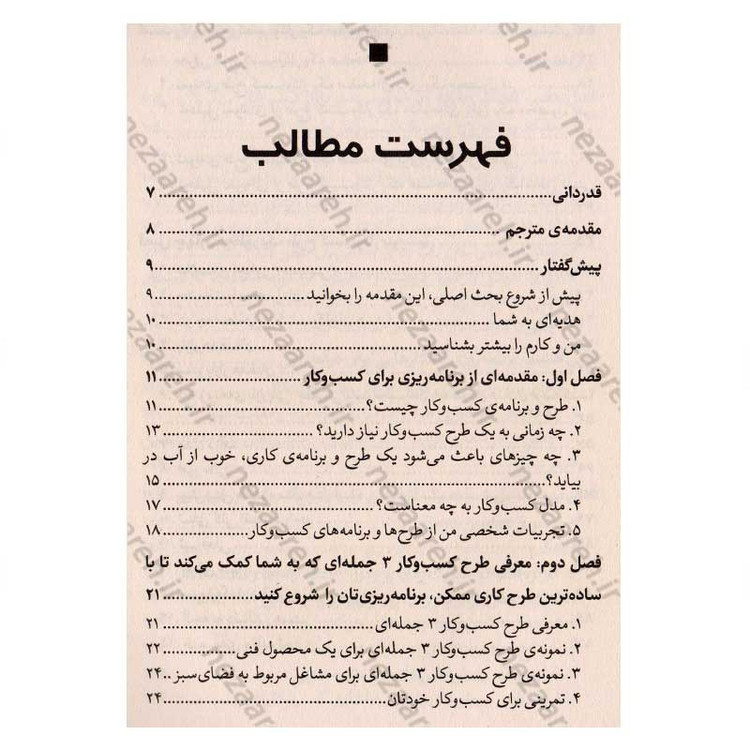 فهرست مطالب
قدردانی ........ ۷
مقدمه‌ی مترجم ........ ۸
پیش‌گفتار ........ ۹
پیش از شروع بحث اصلی، این مقدمه را بخوانید ........ ۹
هدیه‌ای به شما ........ ۱۰
من و کارم را بیشتر بشناسید ........ ۱۰
فصل اول: مقدمه‌ای از برنامه‌ریزی برای کسب‌وکار ........ ۱۱
۱. طرح و برنامه‌ی کسب‌وکار چیست؟ ........ ۱۱
۲. چه زمانی به یک طرح کسب‌وکار نیاز دارید؟ ........ ۱۳
۳. چه چیزهای باعث می‌شود یک طرح و برنامه‌ی کاری، خوب از آب در
بیاید؟ ........ ۱۵
۴. مدل کسب‌وکار به چه معناست؟ ........ ۱۷
۵. تجربیات شخصی من از طرح‌ها و برنامه‌های کسب‌وکار ........ ۱۸
فصل دوم: معرفی طرح کسب‌وکار ۳ جمله‌ای که به شما کمک می‌کند تا با
ساده‌ترین طرح کاری ممکن، برنامه‌ریزی‌تان را شروع کنید ........ ۲۱
۱. معرفی طرح کسب‌وکار ۳ جمله‌ای ........ ۲۱
۲. نمونه‌ی طرح کسب‌وکار ۳ جمله‌ای برای یک محصول فنی ........ ۲۲
۳. نمونه‌ی طرح کسب‌وکار ۳ جمله‌ای برای مشاغل مربوط به فضای سبز .. ۲۴
۴. تمرینی برای کسب‌وکار خودتان ........ ۲۴
nezaareh.ir